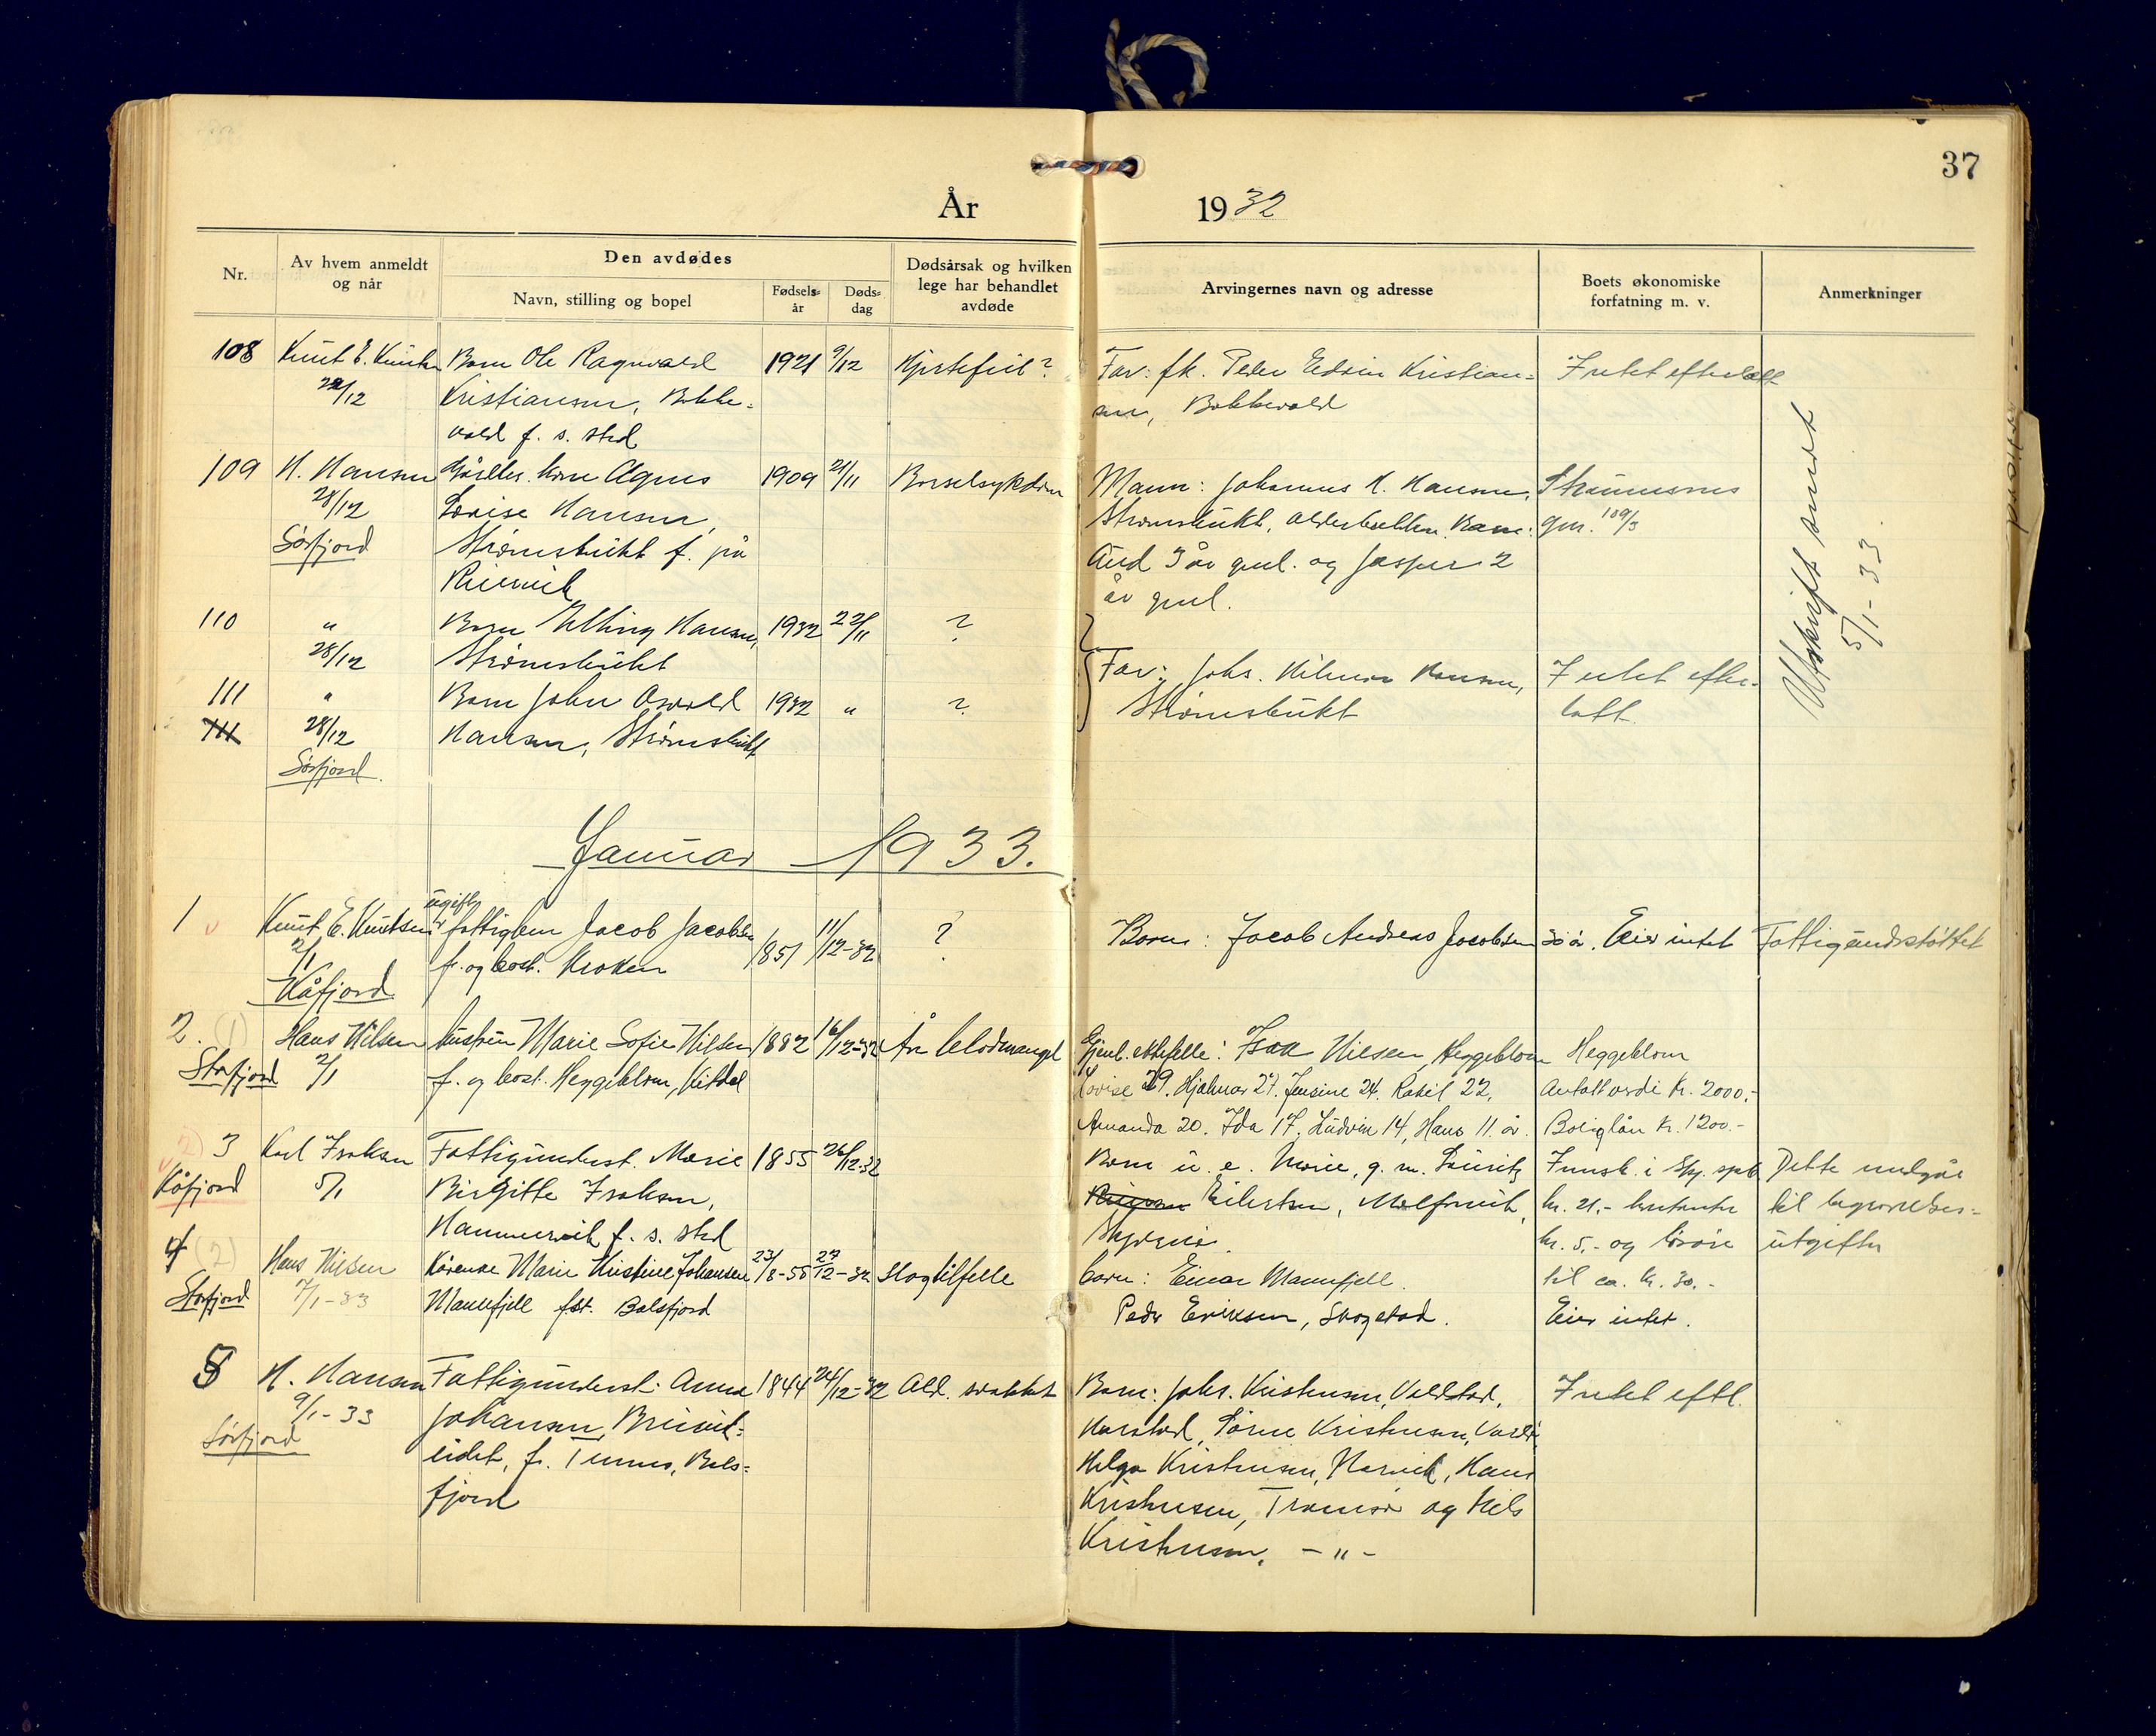 37
År 1932
Nr.
Av hvem anmeldt og når
Den avdødes
Navn, stilling og bopel
Fødselsår
Dødsdag
Dødsårsak og hvilken lege har behandlet avdøde
Arvingernes navn og adresse
Boets økonomiske forfatning m. v.
Anmerkninger
108 Knut E. Knutsen Barn Ole Ragnvald 1921 9/12 Hjertefeil? Far: fk. Peder Edvin Kristian- Intet efterlatt
22/12 Kristiansen, Bakke- sen, Bakkevold
vold f. s. sted
109 H. Hansen Gårdbr. kone Agnes 1909 21/11 Barselsykdom Mann: Johannes H. Hansen, Straumsnes
28/12 Lovise Hansen, Strømsbukt, Barn: gnr. 109/3
Sørfjord Strømsbukt f. på Aud 3 år gml. og Jasper 2
år gml.
110 " Barn Elling Hansen, 1932 22/11 ?
28/12 Strømsbukt Far: Johs. Hilmar Hansen, Intet efter-
111 " Barn John Oswald 1932 " ? Strømsbukt latt.
111 28/12 Hansen, Strømsbukt
Sørfjord.
Utskrift sendt
5/1-33.
Januar 1933.
1 Knut E. Knutsen ugift fattiglem Jacob Jacobsen 1851 11/12-32 ? Barn: Jacob Andreas Jacobsen 30 år. Eier intet Fattigundstøttet
2/1 f. og bost. Kroken
Kåfjord
2. (1) Hans Nilsen hustru Marie Sofie Nilsen 1882 16/12-32 År blodmangel Gjenl. ektefelle: Isak Nilsen, Heggeblom Heggeblom
Storfjord 2/1 f. og bost. Heggeblom, Kitdal Lovise 29. Hjalmar 27. Jensine 24. Rakel 22, Antatt verdi kr. 2000.-
Amanda 20. Ida 17, Ludvin 14, Hans 11. år. Boliglån kr. 1200.-
(2) 3 Karl Isaksen Fattigunderst. Marie 1855 26/12-32 Barn u. e. Marie, g. m. Lauritz Innsk. i Skj. spb. Dette medgår
Kåfjord 5/1 Birgitte Isaksen, Eilertsen, kr. 21,- kontanter til begravelses-
Hammervik f. s. sted Skjervøy. kr. 5,- og løsøre utgifter
4 (2) Hans Nilsen Karense Marie Kristine Johansen 23/8-55 27/12-32 Slagtilfelle barn: Einar Mannfjell. til ca. kr. 30.-
Storfjord 7/1-33 Mannfjell føt. Balsfjord Peder Eriksen, Skogstad. Eier intet.
5 H. Hansen Fattigunderst. Anna 1844 24/12-32 Ald. svakhet Barn: Johs. Kristensen, Valdstad, Intet eftl.
9/1-33 Johansen, Breivik- Karstad, Kristensen,
Sørfjord eidet, f. Tennes, Bals- Helga Kristensen, Narvik, Hans
fjord Kristensen, Tromsø og Nils
Kristensen, - " -